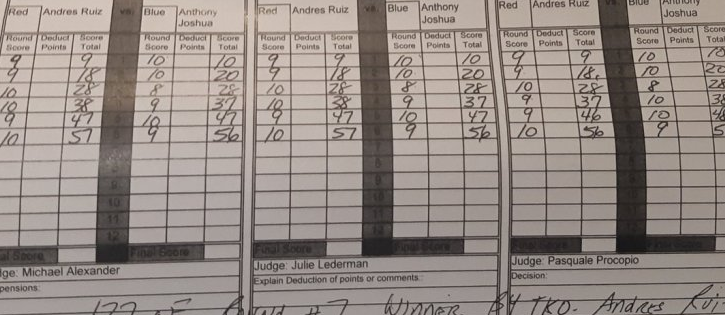 Red Andres Ruiz vs. Blue Anthony Joshua
Round Score Deduct Points Score Total Round Score Deduct Points Score Total
9 9 10 10
9 18 10 20
10 28 8 28
10 38 9 37
9 47 10 47
10 57 9 56
9
10
11
12
Final Score
Judge: Michael Alexander
Red Andres Ruiz vs. Blue Anthony Joshua
Round Score Deduct Points Score Total Round Score Deduct Points Score Total
9 9 10 10
9 18 10 20
10 28 8 28
10 38 9 37
9 47 10 47
10 57 9 56
Final Score Final Score
Judge: Julie Lederman
Explain Deduction of points or comments:
Red Andres Ruiz vs. Blue Anthony Joshua
Round Score Deduct Points Score Total Round Score Deduct Points Score Total
9 9 10 10
9 18 10 20
10 28 8 28
9 37 10 38
9 46 10
10 56 9
Judge: Pasquale Procopio
Decision:
#7 WINNER BY TKO. Andres Rui